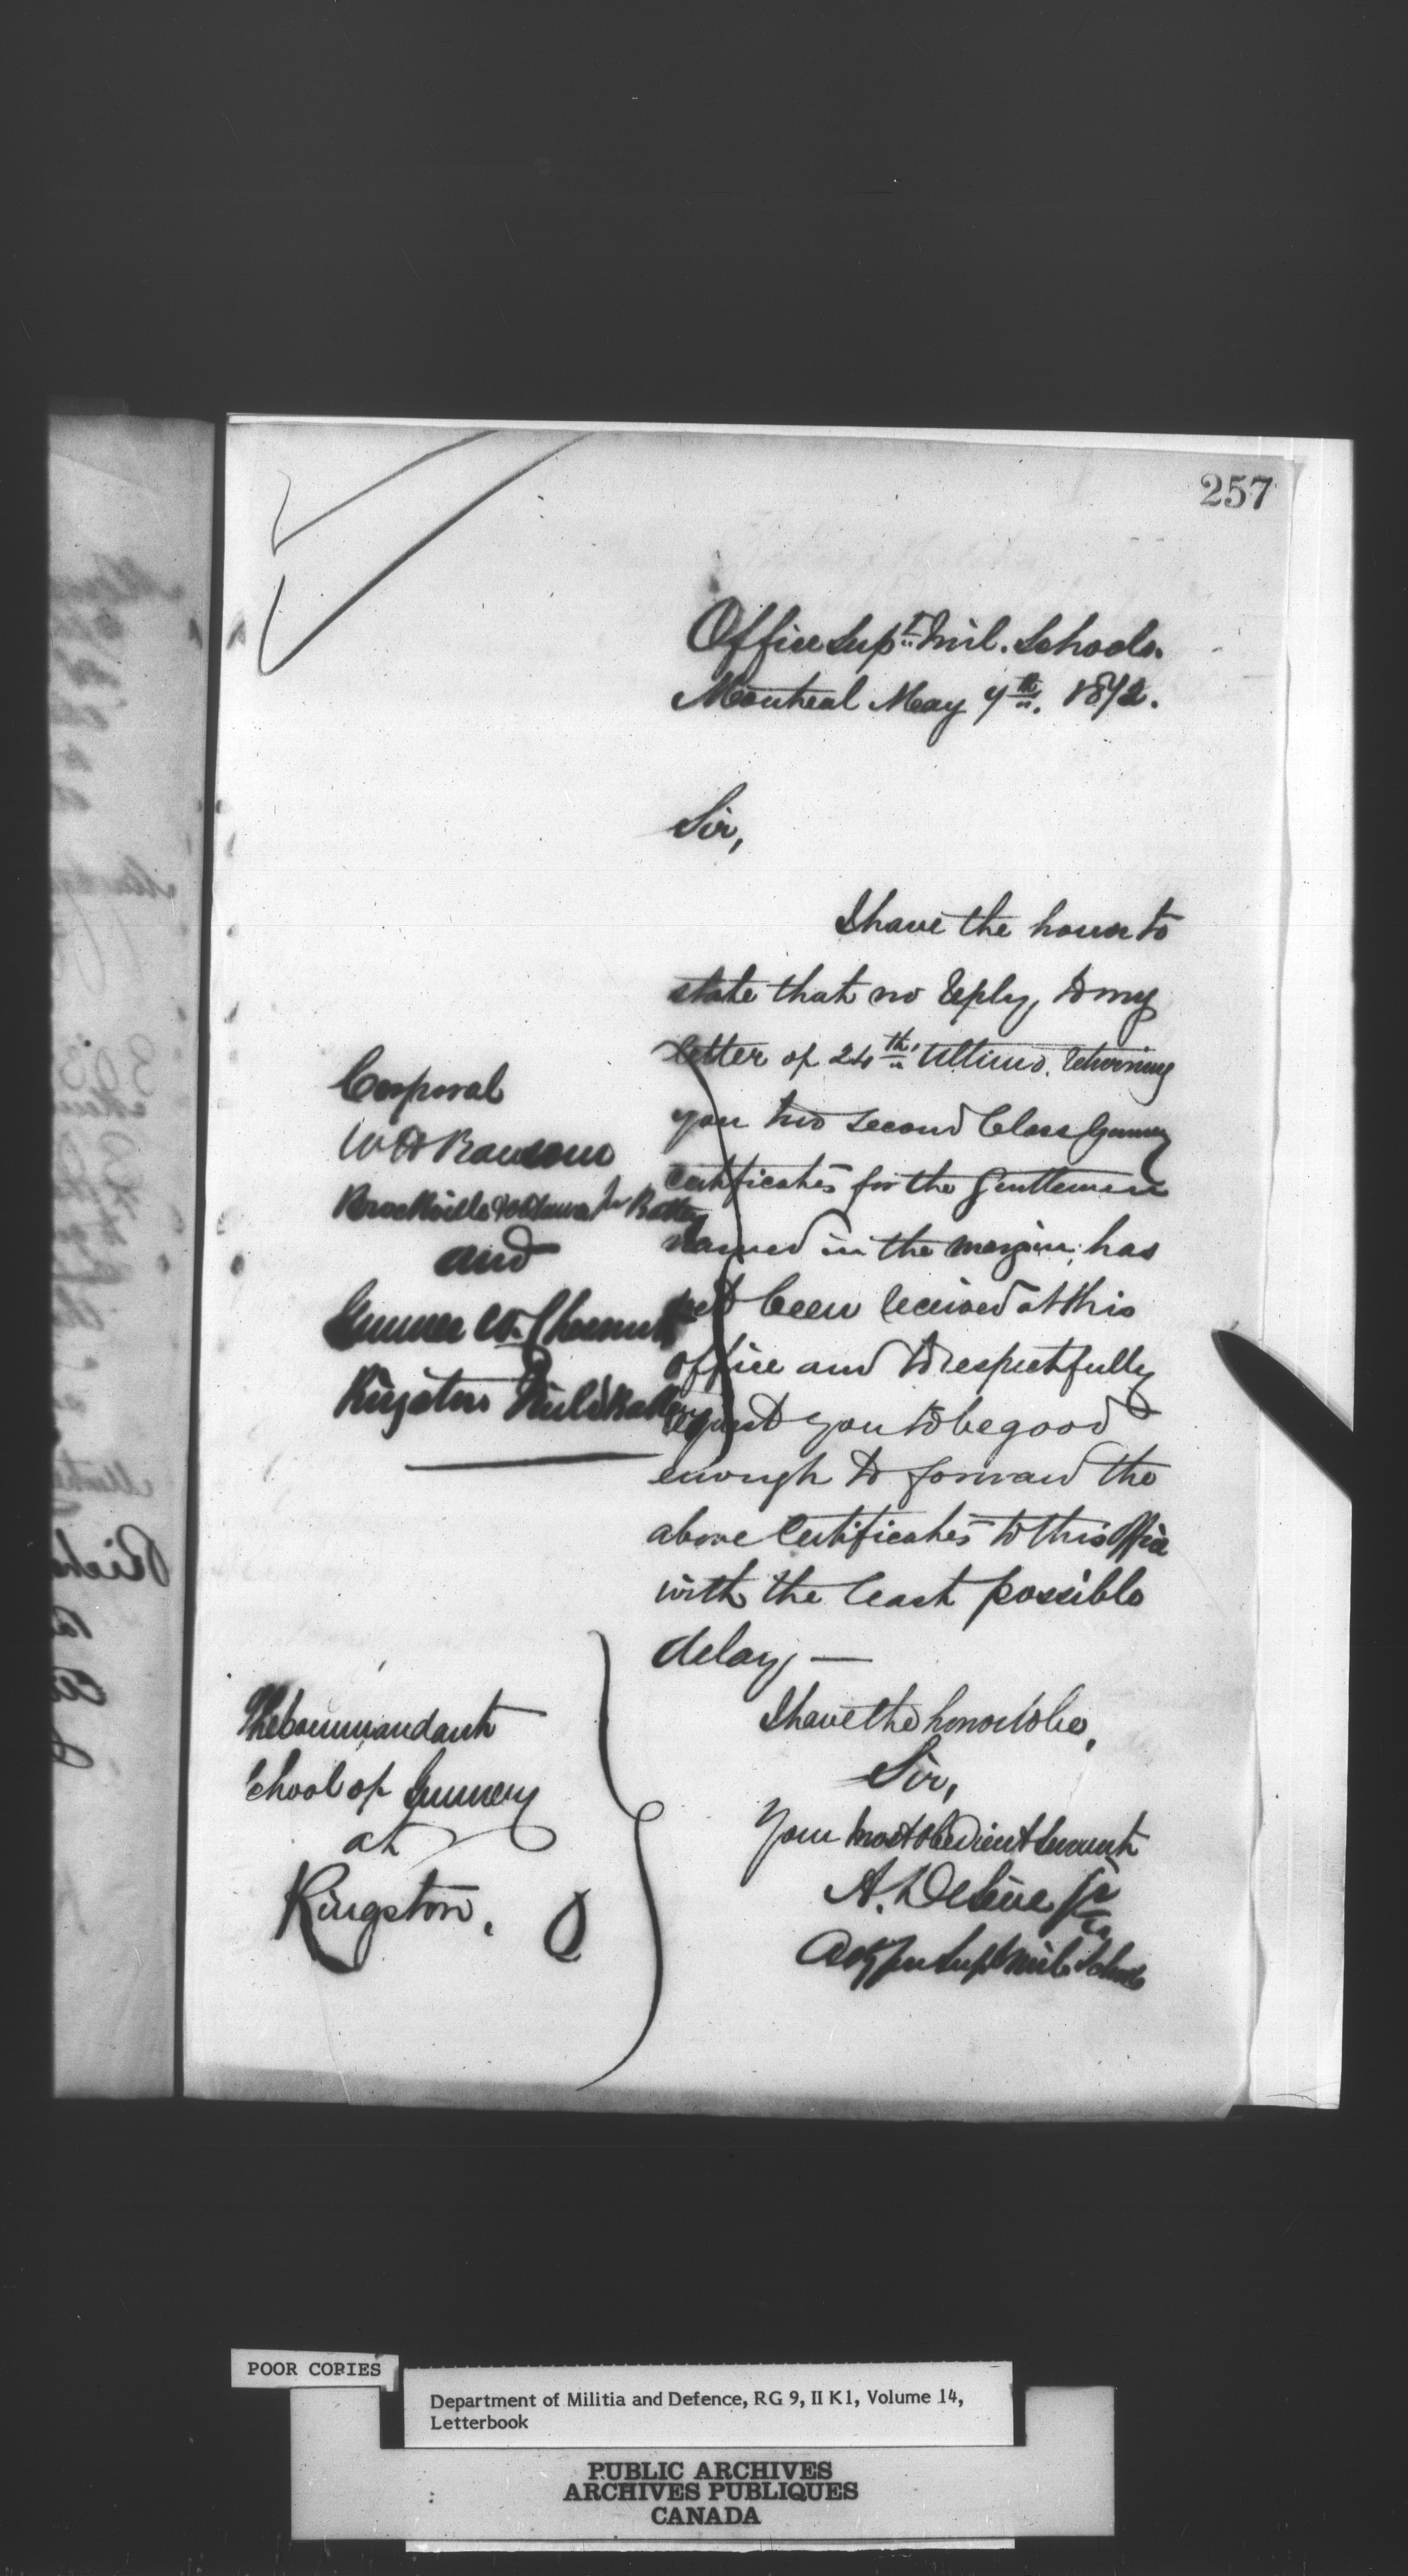 257
Office Supt. Mil. Schools.
Montreal May 7th. 1872.
Sir,
I have the honor to
state that no reply, to my
letter of 24th Ultimo. returning
you two second Class Gunnery
certificates for the Gentlemen
named in the margin; has
yet been received at this
office and to respectfully
request you to be good
enough to forward the
above Certificates to this Office
with the least possible
delay —
Corporal
W
Brockville &
and
Gunner W. Chesnutt
Kingston Field Battery
I have the honor to be,
Sir,
Your most obedient Servant
A. DeLéve Jr
for Supt Mil Schools
The Commandant
School of Gunnery
at
Kingston.
POOR COPIES
Department of Militia and Defence, RG 9, II K1, Volume 14,
Letterbook
PUBLIC ARCHIVES
ARCHIVES PUBLIQUES
CANADA